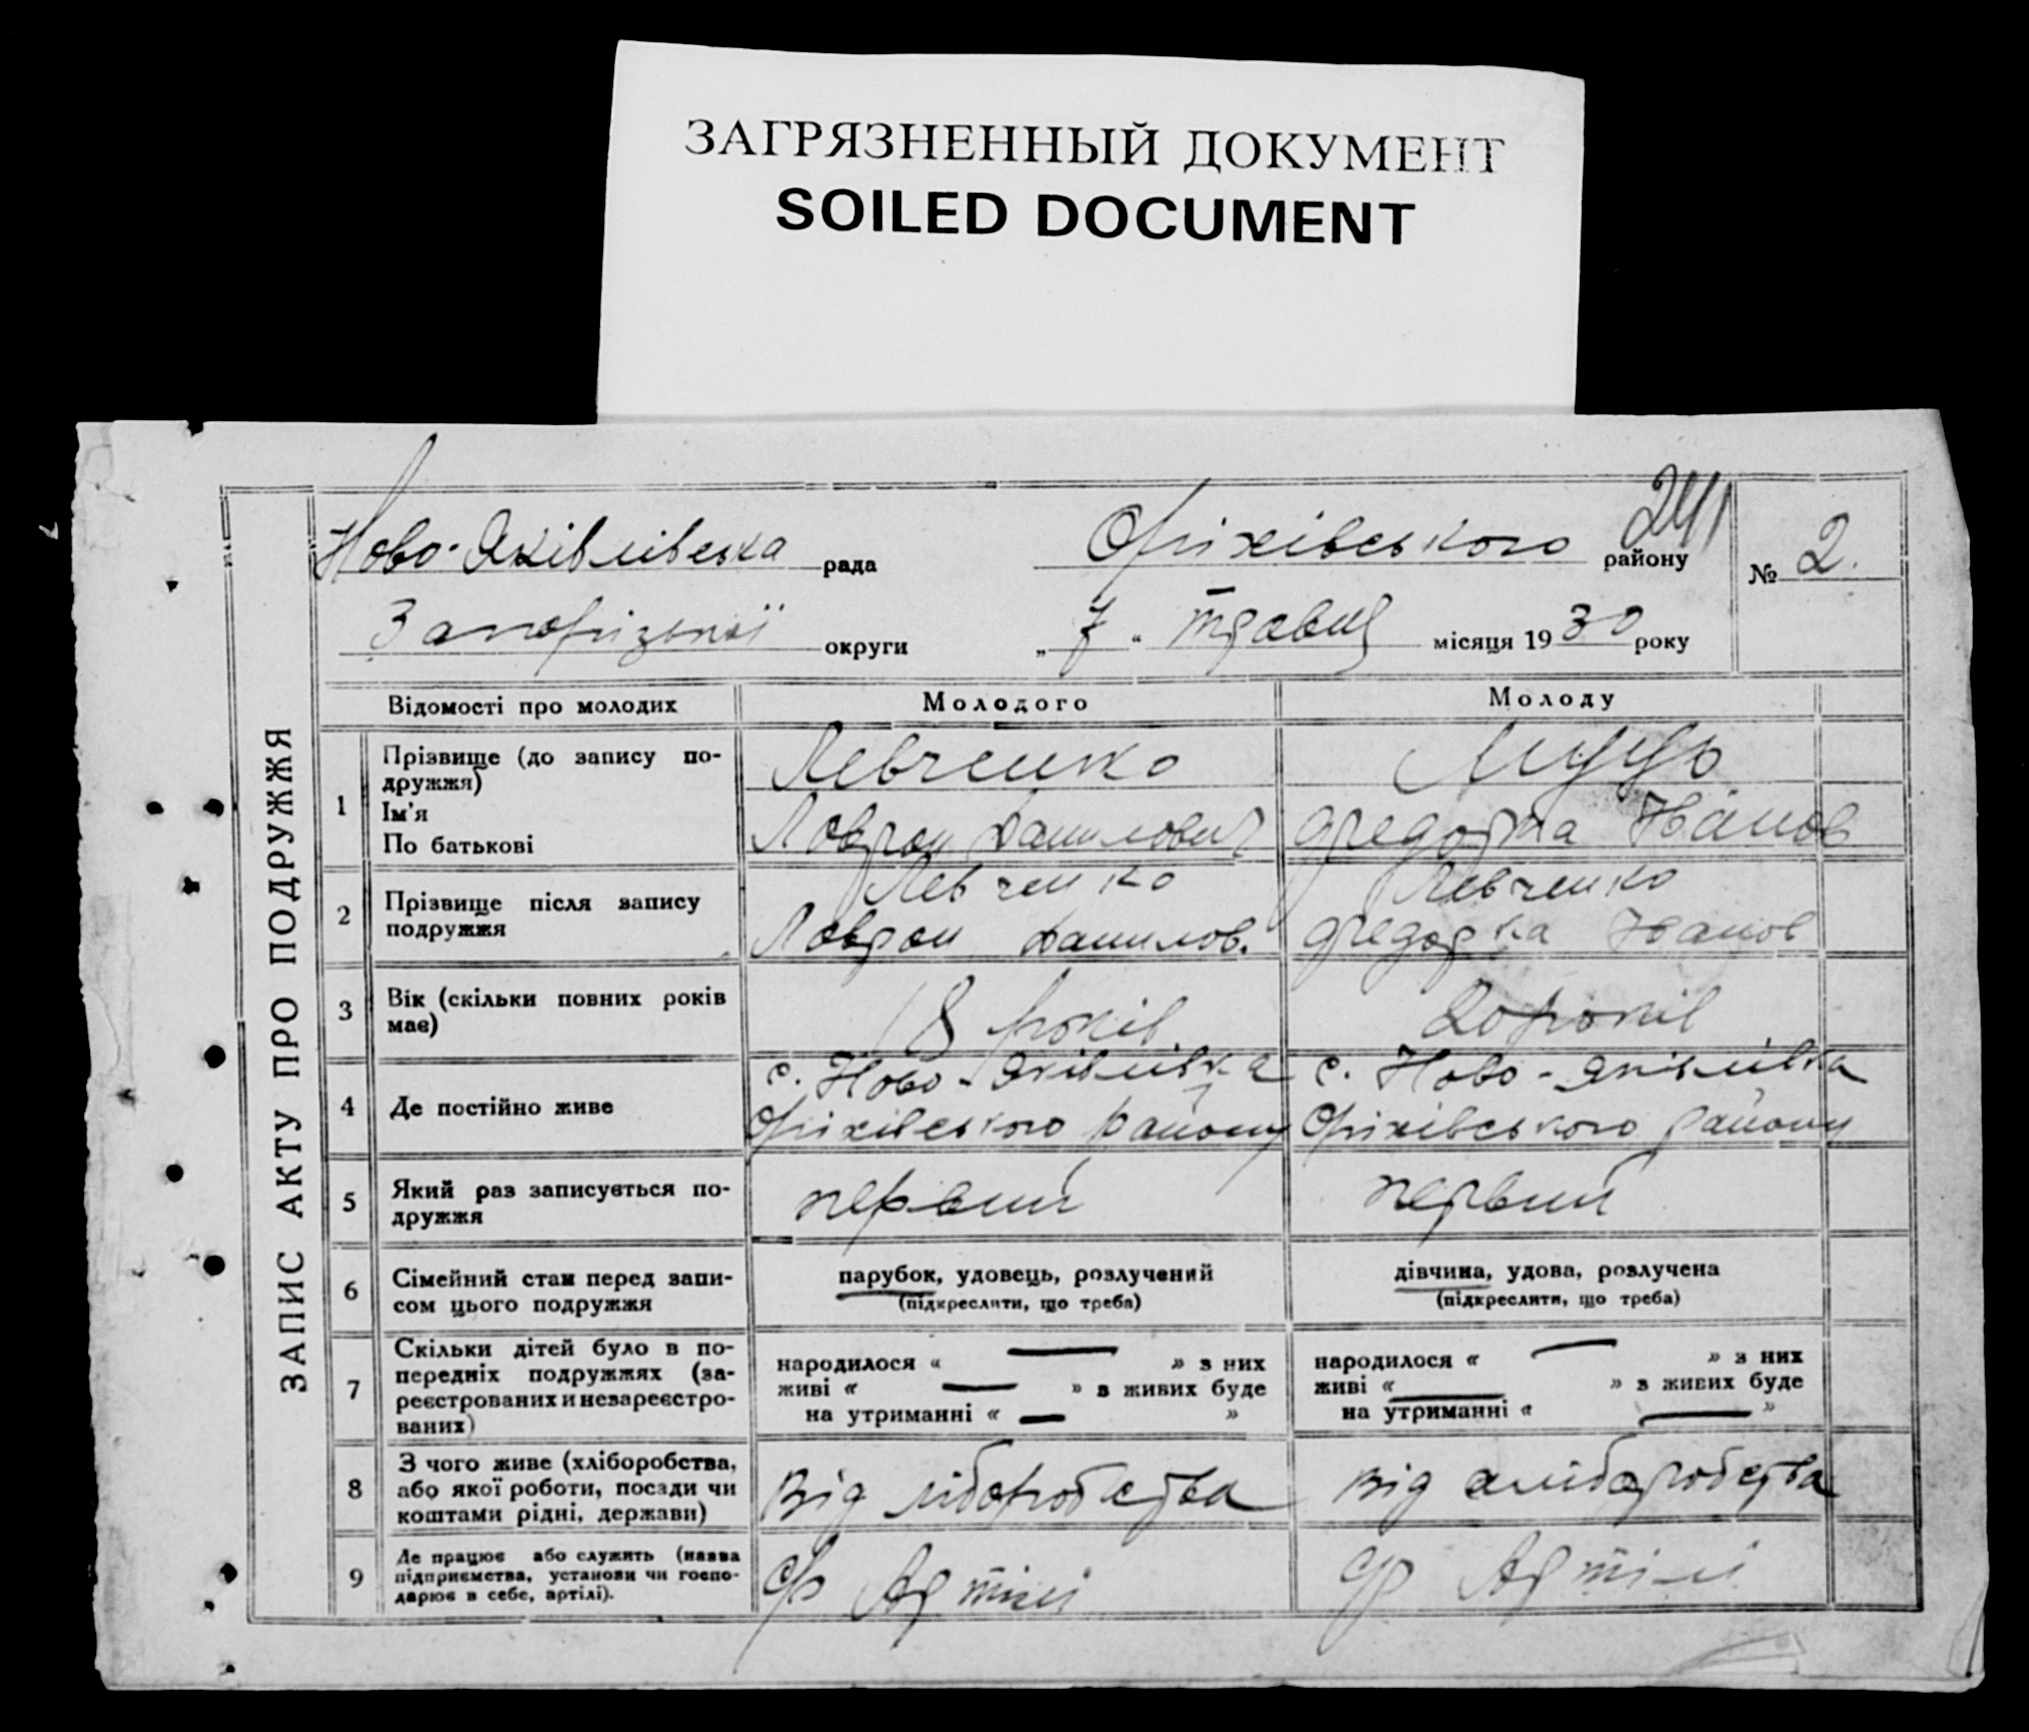 ЗАГРЯЗНЕННЫЙ ДОКУМЕНТ
SOILED DOCUMENT
Ново-Яківлівська рада Оріхівського району 241 № 2.
Запорізької округи „7“ травця місяця 1930 року
ЗАПИС АКТУ ПРО ПОДРУЖЖЯ
Відомості про молодих Молодого Молоду
1 Прізвище (до запису подружжя) Левченко
Ім'я
По батькові Данилович Федорка Іванов
2 Прізвище після запису подружжя Левченко Левченко
Данилов. Федорка Іванов
3 Вік (скільки повних років має) 18 років 20 років
4 Де постійно живе с. Ново-Яківлівка с. Ново-Яківлівка
Оріхівського району Оріхівського району
5 Який раз записується подружжя первий первий
6 Сімейний стан перед записом цього подружжя парубок, удовець, розлучений дівчина, удова, розлучена
(підкреслити, що треба) (підкреслити, що треба)
7 Скільки дітей було в попередніх подружжях (зареєстрованих и незареєстрованих)
народилося « — » з них народилося « — » з них
живі « — » з живих буде живі « — » з живих буде
на утриманні « — » на утриманні « — »
8 З чого живе (хліборобства, або якої роботи, посади чи коштами рідні, держави) від ліборобства від хліборобства
9 Де працює або служить (назва підприємства, установи чи господарює в себе, артілі). Артілі Артілі